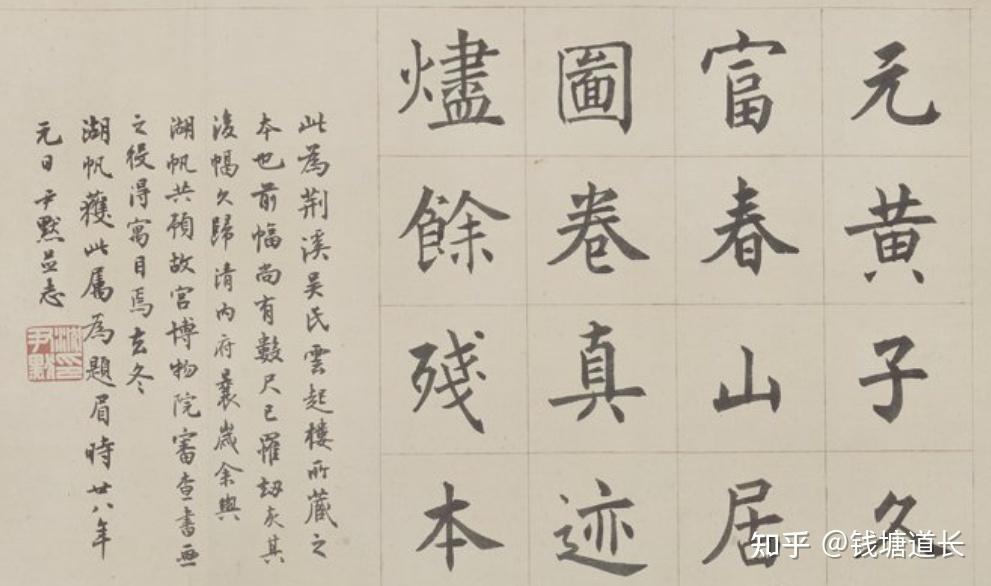 元黄子久
富春山居
圖卷真迹
燼餘殘本
此為荆溪吴氏雲起樓所藏之
本也前幅尚有數尺已罹劫灰其
後幅久歸清内府曩歲余與
湖帆共預故宫博物院審查書画
之役得寓目焉去冬
湖帆獲此屬為題眉時廿八年
元日尹默並志
沈印尹默
知乎 @钱塘道长